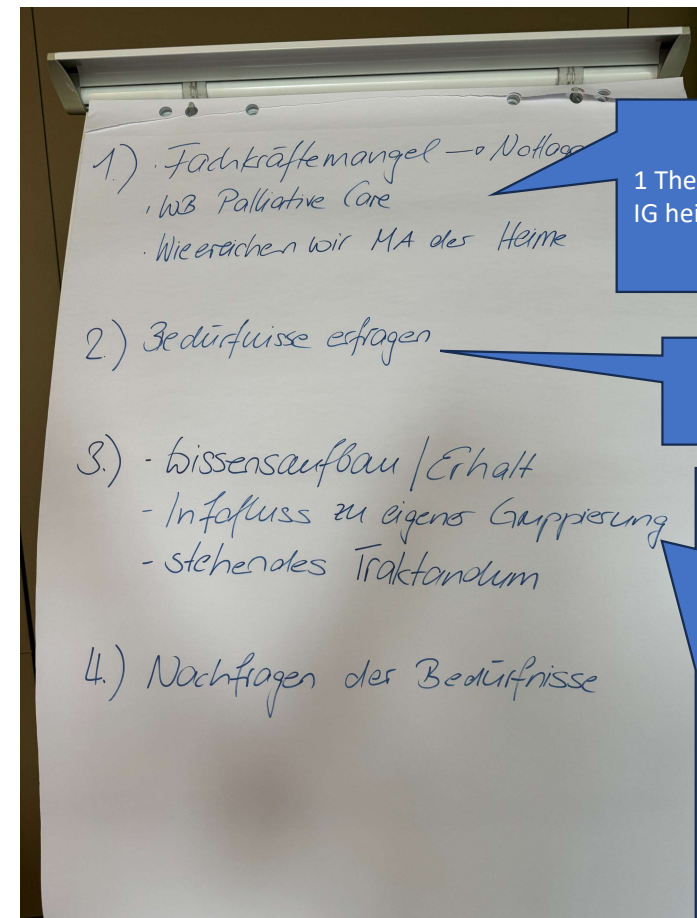 1.) · Fachkräftemangel → Notlage
· WB Palliative Care
· Wie ereichen wir MA der Heime
1 The
IG hei
2.) Bedürfnisse erfragen
3.) - Wissensaufbau / Erhalt
- Infofluss zu eigener Gruppierung
- stehendes Traktandum
4.) Nachfragen der Bedürfnisse